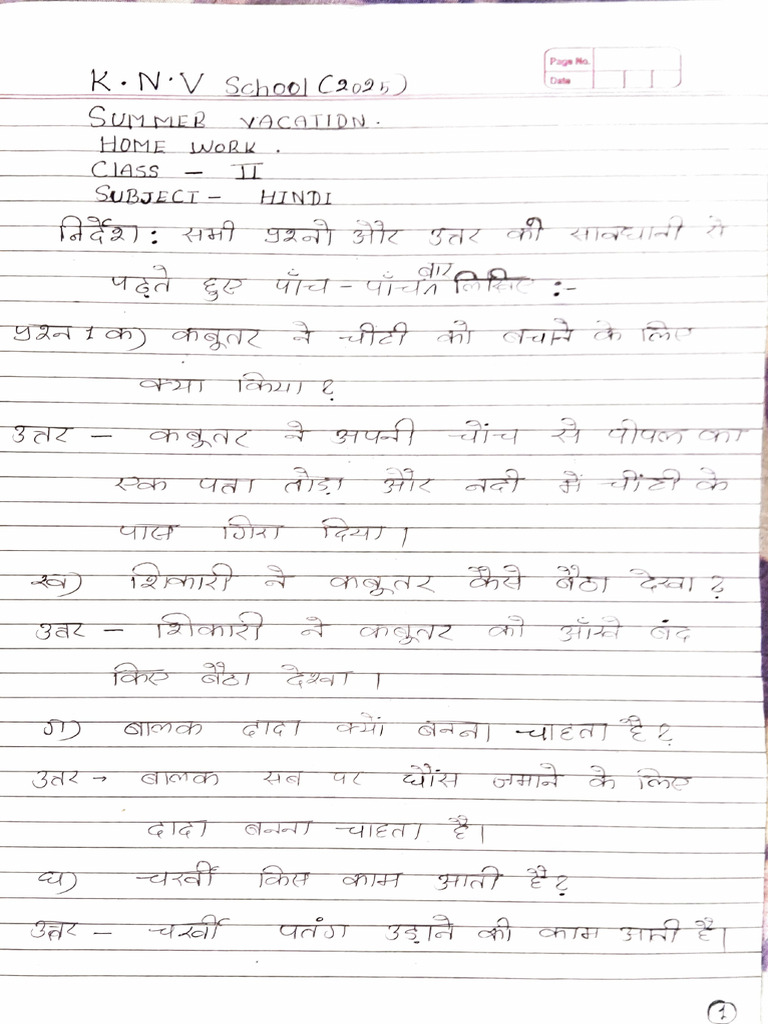 Page No.
Date
K.N.V School (2025)
SUMMER VACATION.
HOME WORK.
CLASS - II
SUBJECT - HINDI
निर्देश: सभी प्रश्नो और उत्तर को सावधानी से
पढ़ते हुए पाँच - पाँच बार लिखिए :-
प्रश्न 1 क) कबूतर ने चींटी को बचाने के लिए
क्या किया?
उत्तर - कबूतर ने अपनी चोंच से पीपल का
एक पत्ता तोड़ा और नदी में चींटी के
पास गिरा दिया।
ख) शिकारी ने कबूतर कैसे बैठा देखा?
उत्तर - शिकारी ने कबूतर को आँखे बंद
किए बैठा देखा।
ग) बालक दादा क्यों बनना चाहता है?
उत्तर → बालक सब पर धौंस जमाने के लिए
दादा बनना चाहता है।
घ) चर्खी किस काम आती है?
उत्तर - चर्खी पतंग उड़ाने की काम आती है।
1